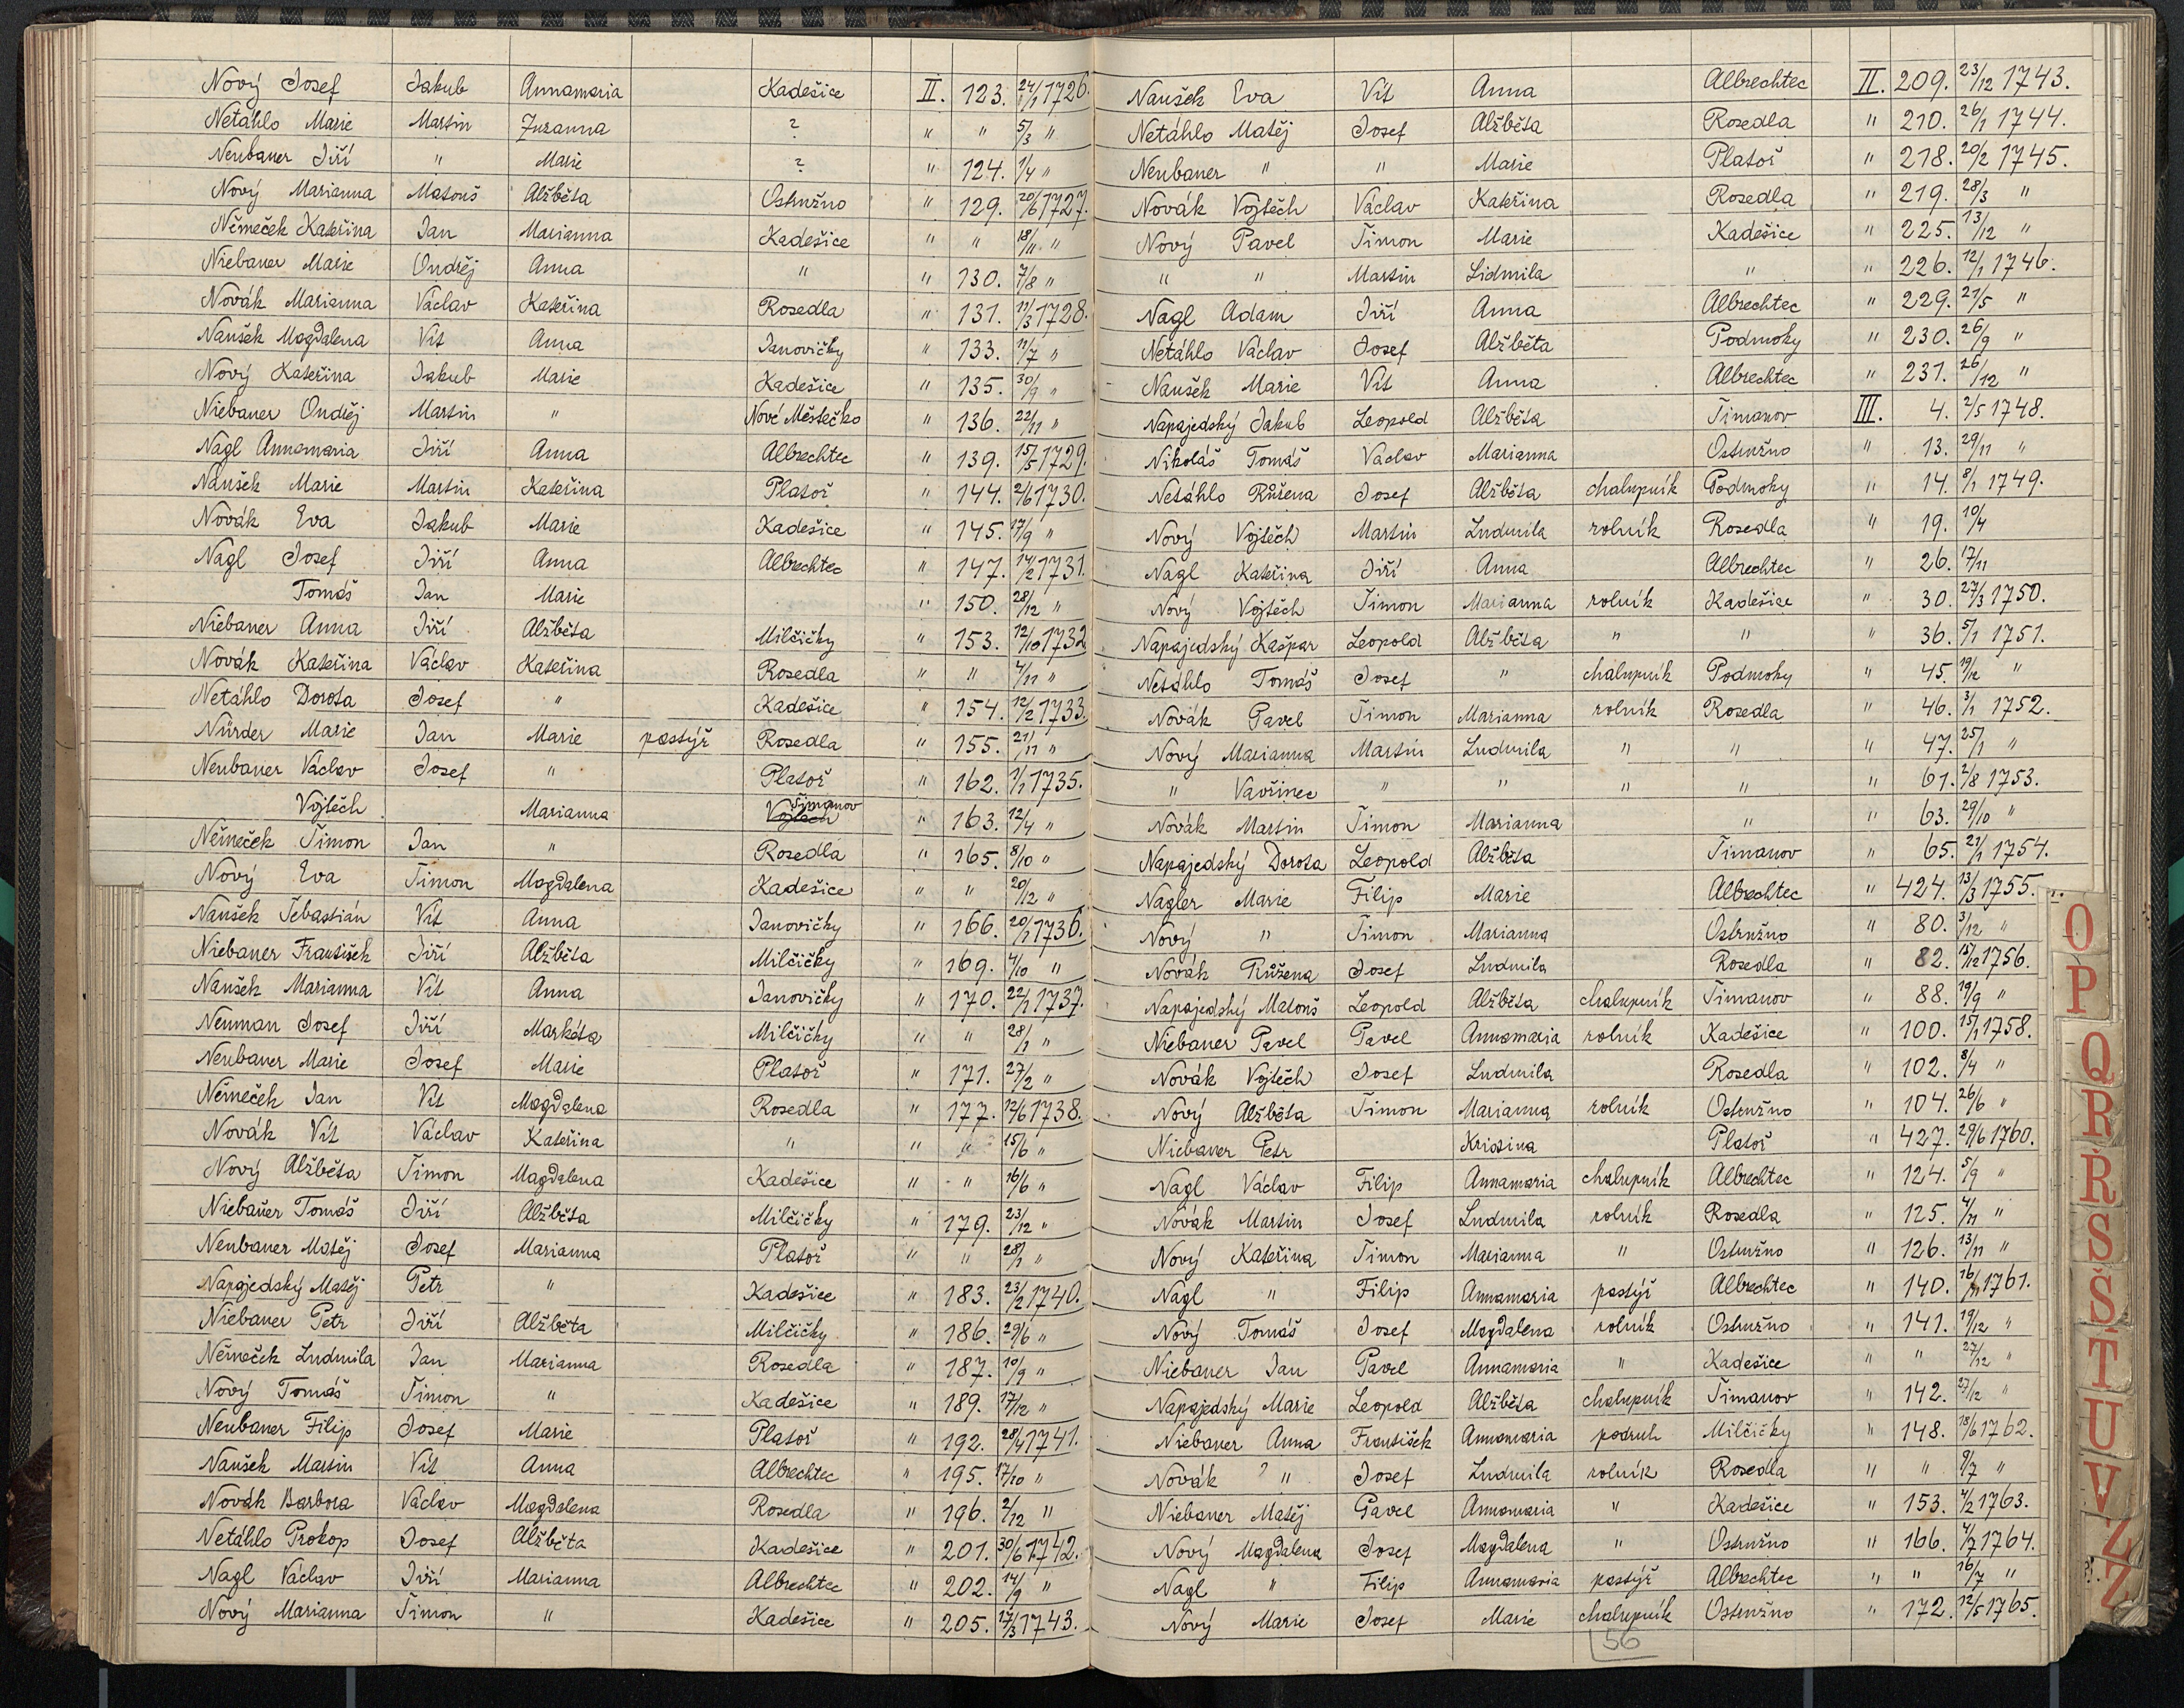 Nový Josef Jakub Annamaria Kadešice II. 123. 24/1 1726.
Netáhlo Marie Martin Zuzanna ? " " 5/3 "
Neubauer Jiří " Marie ? " 124. 1/4 "
Nový Marianna Matouš Alžběta Ostružno " 129. 20/6 1727.
Němeček Kateřina Jan Marianna Kadešice " " 18/11 "
Niebauer Marie Ondřej Anna " " 130. 7/8 "
Novák Marianna Václav Kateřina Rosedla " 131. 11/3 1728.
Naušek Magdalena Vít Anna Janovičky " 133. 11/7 "
Nový Kateřina Jakub Marie Kadešice " 135. 30/9 "
Niebauer Ondřej Martin " Nové Městečko " 136. 22/11 "
Nagl Annamaria Jiří Anna Albrechtec " 139. 15/5 1729.
Naušek Marie Martin Kateřina Platoř " 144. 2/6 1730.
Novák Eva Jakub Marie Kadešice " 145. 17/9 "
Nagl Josef Jiří Anna Albrechtec " 147. 14/2 1731.
Tomáš Jan Marie " 150. 28/12 "
Niebauer Anna Jiří Alžběta Milčičky " 153. 12/10 1732
Novák Kateřina Václav Kateřina Rosedla " " 4/11 "
Netáhlo Dorota Josef " Kadešice " 154. 12/2 1733.
Nürder Marie Jan Marie pastýř Rosedla " 155. 21/11 "
Neubauer Václav Josef " Platoř " 162. 1/1 1735.
Vojtěch Marianna Vojtěch Šimanov " 163. 12/4 "
Němeček Šimon Jan " Rosedla " 165. 8/10 "
Nový Eva Šimon Magdalena Kadešice " " 20/12 "
Naušek Šebastián Vít Anna Janovičky " 166. 20/1 1736.
Niebauer František Jiří Alžběta Milčičky " 169. 4/10 "
Naušek Marianna Vít Anna Janovičky " 170. 22/1 1737.
Neuman Josef Jiří Markéta Milčičky " " 28/1 "
Neubauer Marie Josef Marie Platoř " 171. 27/2 "
Němeček Jan Vít Magdalena Rosedla " 177. 12/6 1738.
Novák Vít Václav Kateřina " " " 15/6 "
Nový Alžběta Šimon Magdalena Kadešice " " 16/6 "
Niebauer Tomáš Jiří Alžběta Milčičky " 179. 23/12 "
Neubauer Matěj Josef Marianna Platoř " " 28/1 "
Napajedský Matěj Petr " Kadešice " 183. 23/2 1740.
Niebauer Petr Jiří Alžběta Milčičky " 186. 29/6 "
Němeček Ludmila Jan Marianna Rosedla " 187. 10/9 "
Nový Tomáš Šimon " Kadešice " 189. 17/12 "
Neubauer Filip Josef Marie Platoř " 192. 28/4 1741.
Naušek Martin Vít Anna Albrechtec " 195. 17/10 "
Novák Barbora Václav Magdalena Rosedla " 196. 2/12 "
Netáhlo Prokop Josef Alžběta Kadešice " 201. 30/6 1742.
Nagl Václav Jiří Marianna Albrechtec " 202. 14/9 "
Nový Marianna Šimon " Kadešice " 205. 17/3 1743.
Naušek Eva Vít Anna Albrechtec II. 209. 23/12 1743.
Netáhlo Matěj Josef Alžběta Rosedla " 210. 26/1 1744.
Neubauer " " Marie Platoř " 218. 20/2 1745.
Novák Vojtěch Václav Kateřina Rosedla " 219. 28/3 "
Nový Pavel Šimon Marie Kadešice " 225. 13/12 "
" " Martin Lidmila " " 226. 12/1 1746.
Nagl Adam Jiří Anna Albrechtec " 229. 21/5 "
Netáhlo Václav Josef Alžběta Podmoky " 230. 26/9 "
Naušek Marie Vít Anna Albrechtec " 231. 26/12 "
Napajedský Jakub Leopold Alžběta Šimanov III. 4. 2/5 1748.
Nikoláš Tomáš Václav Marianna Ostružno " 13. 29/11 "
Netáhlo Růžena Josef Alžběta chalupník Podmoky " 14. 8/1 1749.
Nový Vojtěch Martin Ludmila rolník Rosedla " 19. 10/4
Nagl Kateřina Jiří Anna Albrechtec " 26. 17/11
Nový Vojtěch Šimon Marianna rolník Kadešice " 30. 27/3 1750.
Napajedský Kašpar Leopold Alžběta " " " 36. 5/1 1751.
Netáhlo Tomáš Josef " chalupník Podmoky " 45. 19/12 "
Novák Pavel Šimon Marianna rolník Rosedla " 46. 3/1 1752.
Nový Marianna Martin Ludmila " " " 47. 25/1 "
" Vavřinec " " " " " 61. 2/8 1753.
Novák Martin Šimon Marianna " " 63. 29/10 "
Napajedský Dorota Leopold Alžběta Šimanov " 65. 21/1 1754.
Nagler Marie Filip Marie Albrechtec " 424. 13/3 1755.
Nový " Šimon Marianna Ostružno " 80. 3/12 "
Novák Růžena Josef Ludmila Rosedla " 82. 15/12 1756.
Napajedský Matouš Leopold Alžběta chalupník Šimanov " 88. 19/9 "
Niebauer Pavel Pavel Annamaria rolník Kadešice " 100. 15/1 1758.
Novák Vojtěch Josef Ludmila Rosedla " 102. 8/4 "
Nový Alžběta Šimon Marianna rolník Ostružno " 104. 26/6 "
Niebauer Petr Kristina Platoř " 427. 29/6 1760.
Nagl Václav Filip Annamaria chalupník Albrechtec " 124. 5/9 "
Novák Martin Josef Ludmila rolník Rosedla " 125. 4/11 "
Nový Kateřina Šimon Marianna " Ostružno " 126. 13/11 "
Nagl " Filip Annamaria pastýř Albrechtec " 140. 16/11 1761.
Nový Tomáš Josef Magdalena rolník Ostružno " 141. 19/12 "
Niebauer Jan Pavel Annamaria " Kadešice " " 27/12 "
Napajedský Marie Leopold Alžběta chalupník Šimanov " 142. 27/12 "
Niebauer Anna František Annamaria podruh Milčičky " 148. 18/6 1762.
Novák ? " Josef Ludmila rolník Rosedla " " 9/7 "
Niebauer Matěj Pavel Annamaria " Kadešice " 153. 4/2 1763.
Nový Magdalena Josef Magdalena " Ostružno " 166. 4/7 1764.
Nagl " Filip Annamaria pastýř Albrechtec " " 16/7 "
Nový Marie Josef Marie chalupník Ostružno " 172. 12/5 1765.
56
O
P
Q
R
Ř
S
Š
T
U
V
Z
Ž